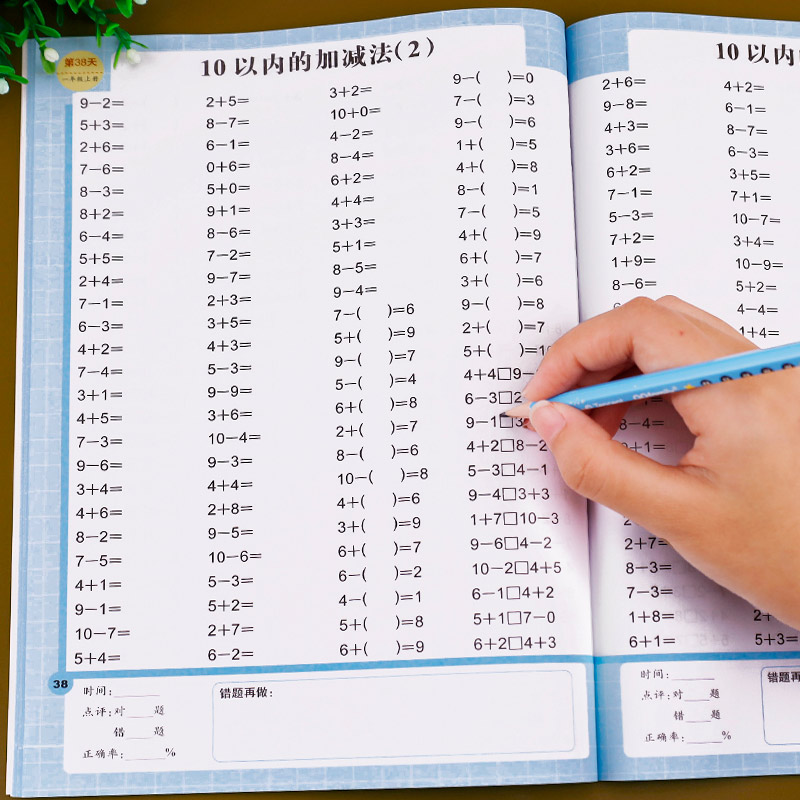 第38天
一年级上册
10以内的加减法(2)
9－2＝
5＋3＝
2＋6＝
7－6＝
8－3＝
8＋2＝
6－4＝
5＋5＝
2＋4＝
7－1＝
6－3＝
4＋2＝
7－4＝
3＋1＝
4＋5＝
7－3＝
9－6＝
3＋4＝
4＋6＝
8－2＝
7－5＝
4＋1＝
9－1＝
10－7＝
5＋4＝
2＋5＝
8－7＝
6－1＝
0＋6＝
5＋0＝
9＋1＝
8－6＝
7－2＝
9－7＝
2＋3＝
3＋5＝
4＋3＝
5－3＝
9－9＝
3＋6＝
10－4＝
9－3＝
4＋4＝
2＋8＝
9－5＝
10－6＝
5－3＝
5＋2＝
2＋7＝
6－2＝
3＋2＝
10＋0＝
4－2＝
8－4＝
6＋2＝
4＋4＝
3＋3＝
5＋1＝
8－5＝
9－4＝
7－( )＝6
5＋( )＝9
9－( )＝7
5－( )＝4
6＋( )＝8
2＋( )＝7
8－( )＝6
10－( )＝8
4＋( )＝6
3＋( )＝9
6＋( )＝7
6－( )＝2
4－( )＝1
5＋( )＝8
6＋( )＝9
9－( )＝0
7－( )＝3
9－( )＝6
1＋( )＝5
4＋( )＝8
8－( )＝1
7－( )＝5
4＋( )＝9
6＋( )＝7
3＋( )＝6
9－( )＝8
2＋( )＝7
5＋( )＝10
4＋4□9－
6－3□2
9－1□3
4＋2□8－2
5－3□4－1
9－4□3＋3
1＋7□10－3
9－6□4－2
10－2□4＋5
6－1□4＋2
5＋1□7－0
6＋2□4＋3
38
时间：
点评：对 题
错 题
正确率： %
错题再做：
10以内
2＋6＝
9－8＝
4＋3＝
3＋6＝
6＋2＝
7－1＝
5－3＝
7＋2＝
1＋9＝
8－6＝
8－4＝
＋1＝
2＋7＝
8－3＝
7－3＝
1＋8＝
6＋1＝
4＋2＝
6－1＝
8－7＝
6－3＝
3＋5＝
7＋1＝
10－7＝
3＋4＝
10－9＝
5＋2＝
4－4＝
1＋4＝
2＋
5＋3＝
时间：
点评：对 题
错 题
正确率： %
错题再